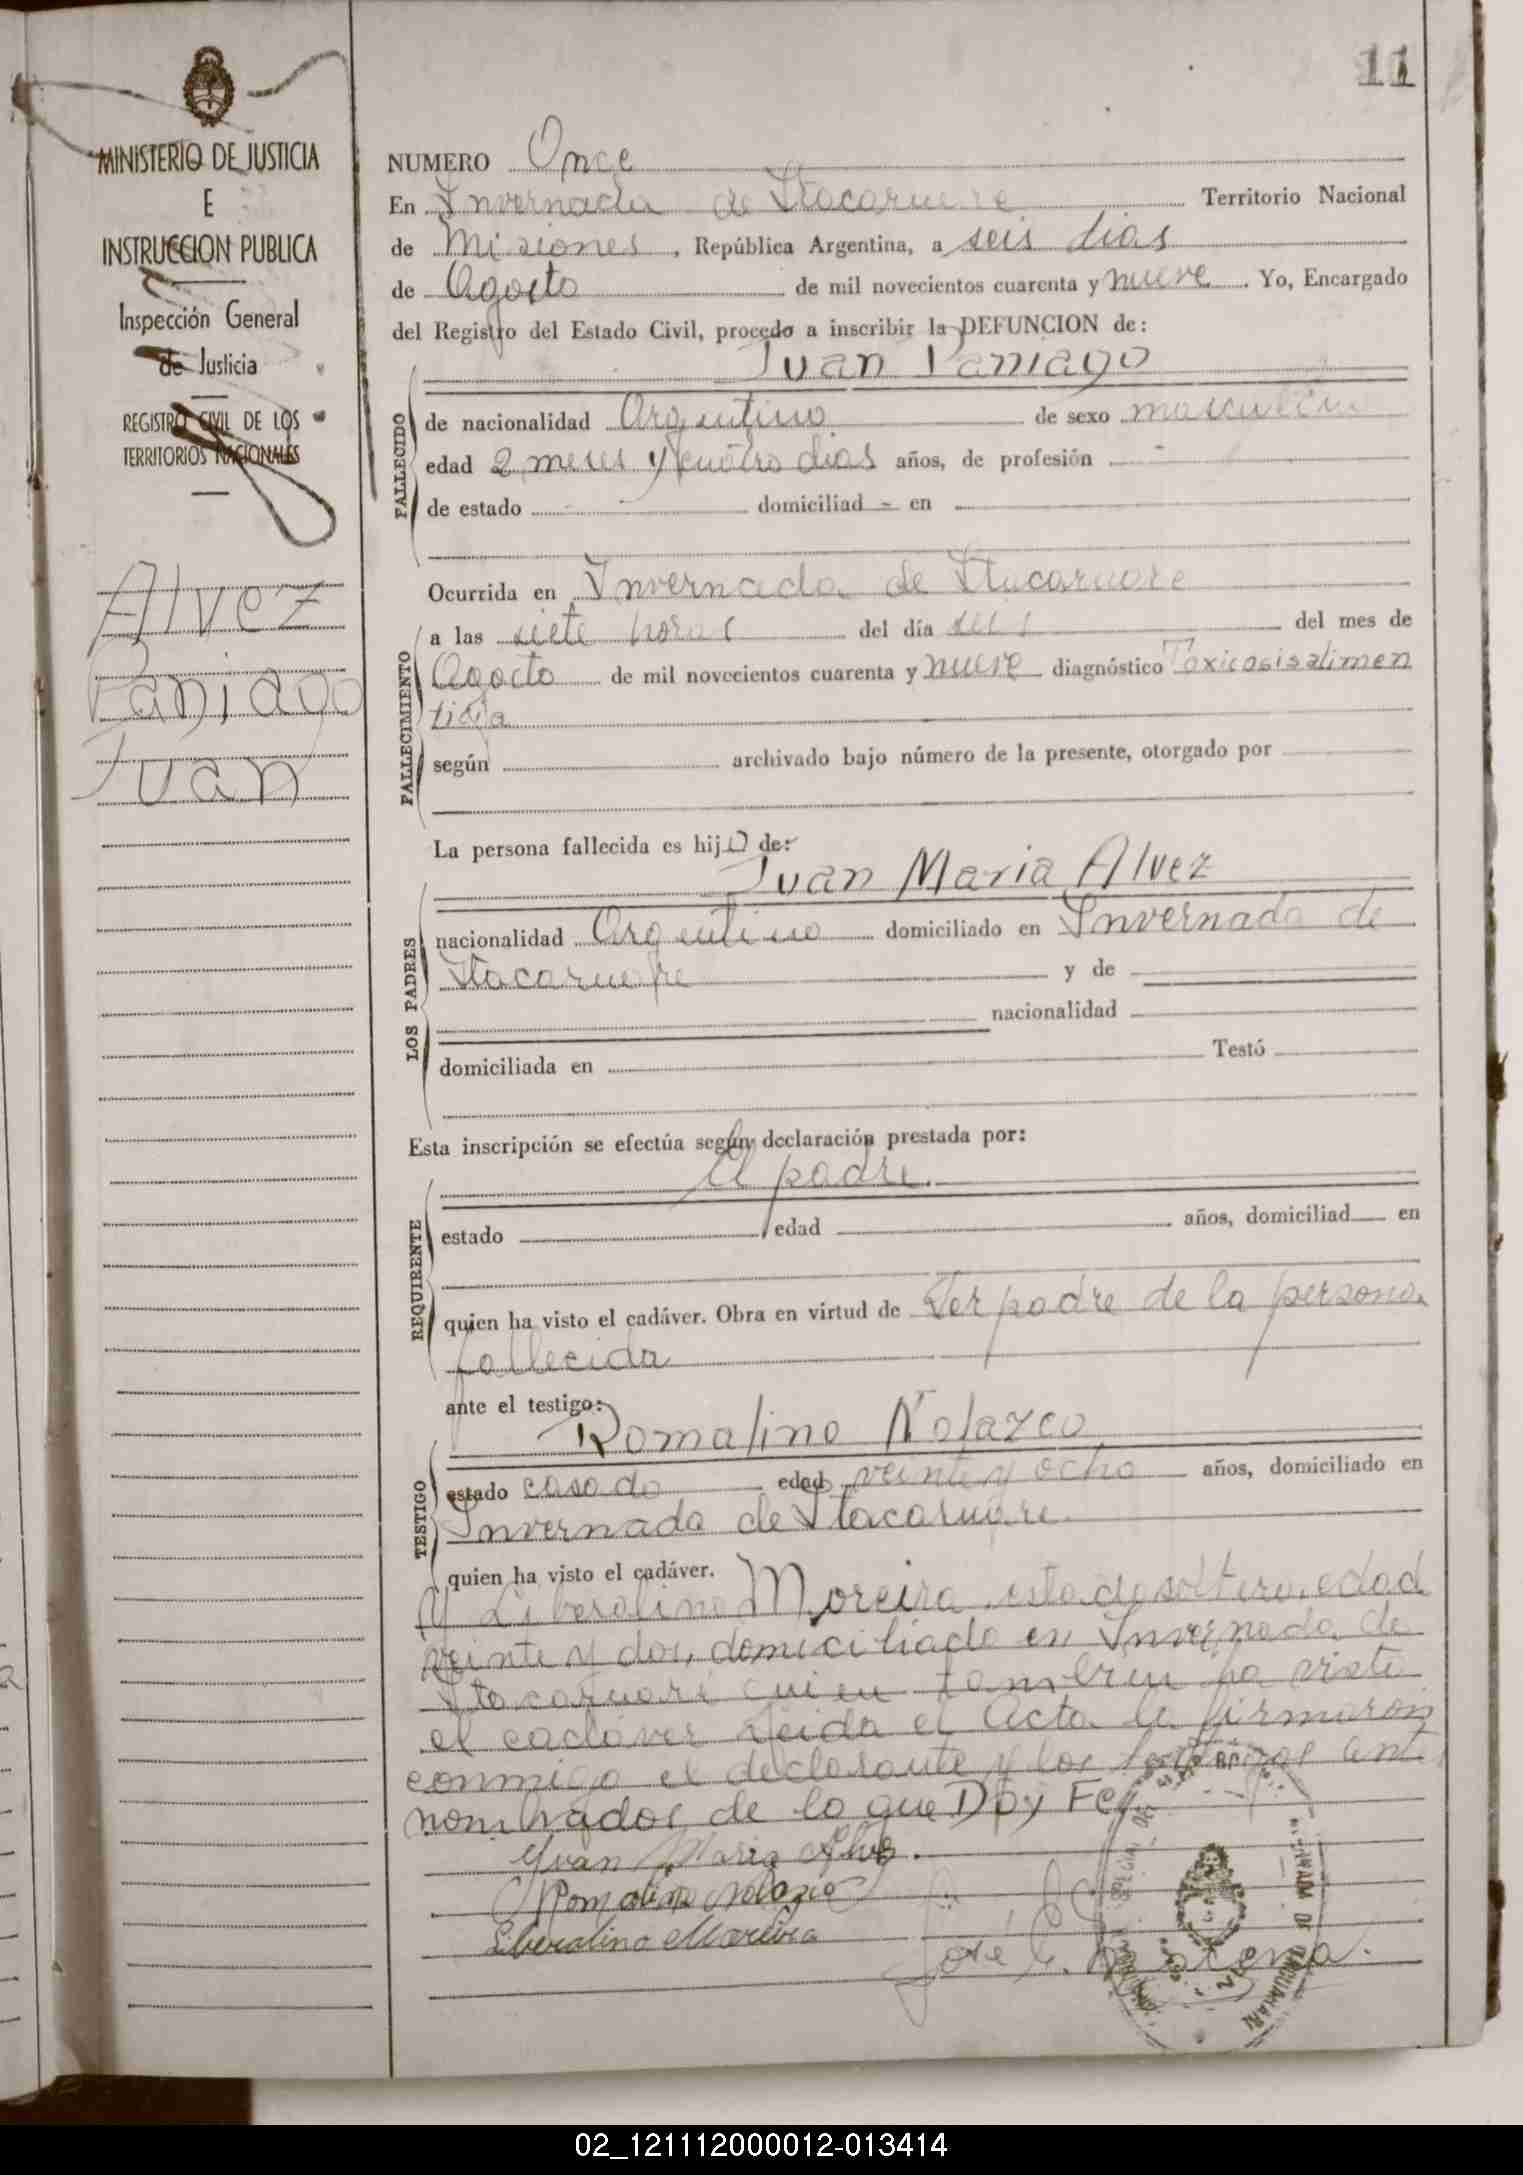 11
MINISTERIO DE JUSTICIA
E
INSTRUCCION PUBLICA
Inspección General
de Justicia
REGISTRO CIVIL DE LOS
TERRITORIOS NACIONALES
Alvez
Paniago
Juan
NUMERO Once
En Invernada de Itacaruare Territorio Nacional
de Misiones, República Argentina, a seis dias
de Agosto de mil novecientos cuarenta y nueve. Yo, Encargado
del Registro del Estado Civil, procedo a inscribir la DEFUNCION de:
Juan Paniago
FALLECIDO
de nacionalidad Argentino de sexo masculino
edad 2 meses y cuatro dias años, de profesión -
de estado - domiciliad - en
Ocurrida en Invernada de Itacaruare
FALLECIMIENTO
a las siete horas del día seis del mes de
Agosto de mil novecientos cuarenta y nueve diagnóstico Toxicosis alimen
ticia
según archivado bajo número de la presente, otorgado por
La persona fallecida es hijo de:
Juan Maria Alvez
LOS PADRES
nacionalidad Argentino domiciliado en Invernada de
Itacaruare y de
nacionalidad
domiciliada en Testó
Esta inscripción se efectúa según declaración prestada por:
el padre.
REQUIRENTE
estado edad años, domiciliad en
quien ha visto el cadáver. Obra en virtud de Ser padre de la persona
fallecida
ante el testigo:
Romalino Nolazco
TESTIGO
estado casado edad veinte y ocho años, domiciliado en
Invernada de Itacaruare.
quien ha visto el cadáver.
Y Liberalino Moreira, estado soltero, edad
veinte y dos, domiciliado en Invernada de
Itacaruare quien tambien ha visto
el cadáver Leida el Acta la firmaron
conmigo el declarante y los testigos ant
nombrados de lo que Doy Fe.
Yvan Maria Alves.
Romalino Nolazco
Liberalino Moreira
José E.
02_121112000012-013414